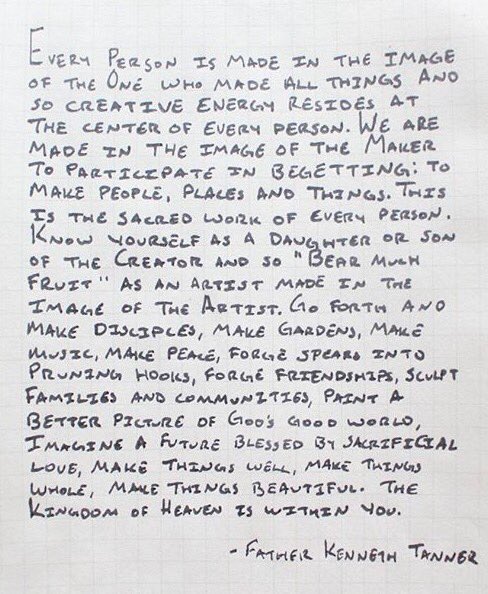 Every Person is made in the image
of the One who made all things and
so creative energy resides at
the center of every person. We are
made in the image of the Maker
to participate in begetting: to
make people, places and things. This
is the sacred work of every person.
Know yourself as a daughter or son
of the Creator and so "Bear much
fruit" as an artist made in the
image of the Artist. Go forth and
make disciples, make gardens, make
music, make peace, forge spears into
pruning hooks, forge friendships, sculpt
families and communities, paint a
better picture of God's good world,
imagine a future blessed by sacrificial
love, make things well, make things
whole, make things beautiful. The
Kingdom of Heaven is within you.
- Father Kenneth Tanner